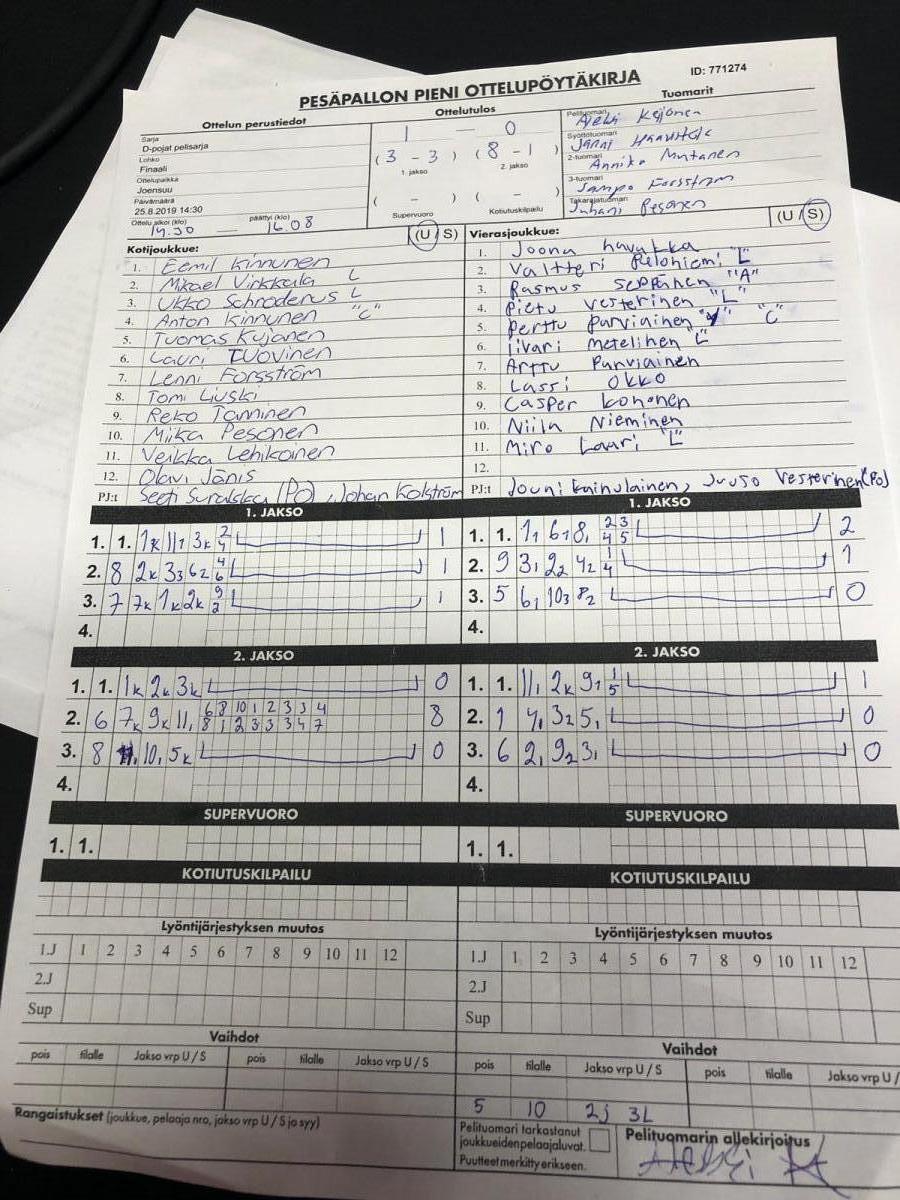 PESÄPALLON PIENI OTTELUPÖYTÄKIRJA
ID: 771274
Ottelun perustiedot
Sarja
D-pojat pelisarja
Lohko
Finaali
Ottelupaikka
Joensuu
Päivämäärä
25.8.2019 14:30
Ottelu alkoi (klo) päättyi (klo)
14.30 — 16.08
Ottelutulos
1 — 0
( 3 - 3 ) ( 8 - 1 )
1. jakso 2. jakso
( - ) ( - )
Supervuoro Kotiutuskilpailu
Tuomarit
Pelituomari
Kejonen
Syöttötuomari
Janni
2-tuomari
Annika Mutanen
3-tuomari
Sampo Forsström
Takarajatuomari
Juhani Pesonen
Kotijoukkue: (U / S)
1. Eemil Kinnunen
2. Mikael Virkkala L
3. Ukko Schroderus L
4. Anton Kinnunen "C"
5. Tuomas Kujanen
6. Lauri Tuovinen
7. Lenni Forsström
8. Tomi Liuski
9. Reko Tanninen
10. Miika Pesonen
11. Veikka Lehikoinen
12. Olavi Jänis
PJ:t (PO), Johan Kolström
Vierasjoukkue: (U / S)
1. Joona Havukka
2. Valtteri Pelohiemi "L"
3. Rasmus Seppänen "A"
4. Pietu Vesterinen "L"
5. Perttu Parviainen "C"
6. Iivari Metelinen "L"
7. Arttu Parviainen
8. Lassi Okko
9. Casper Kononen
10. Niila Nieminen
11. Miro Lauri "L"
12.
PJ:t Jouni Kainulainen, Juuso Vesterinen (PO)
1. JAKSO
1. 1. 1k 11, 3k 2 4 1
2. 8 2k 33 62 4 6 1
3. 7 7k 1k 2k 9 2 1
4.
1. JAKSO
1. 1. 1, 6, 8, 2 3 4 5 2
2. 9 3, 22 42 1 4 1
3. 5 6, 103 82 0
4.
2. JAKSO
1. 1. 1k 2k 3k 0
2. 6 7k 9k 11, 6 8 10 1 2 3 3 4 8
8 1 2 3 3 3 4 7
3. 8 10, 5k 0
4.
2. JAKSO
1. 1. 11, 2k 91 1 5 1
2. 1 4, 32 5, 0
3. 6 2, 92 3, 0
4.
SUPERVUORO
1. 1.
SUPERVUORO
1. 1.
KOTIUTUSKILPAILU
KOTIUTUSKILPAILU
Lyöntijärjestyksen muutos
1.J 1 2 3 4 5 6 7 8 9 10 11 12
2.J
Sup
Lyöntijärjestyksen muutos
1.J 1 2 3 4 5 6 7 8 9 10 11 12
2.J
Sup
Vaihdot
pois tilalle Jakso vrp U / S pois tilalle Jakso vrp U / S
Vaihdot
pois tilalle Jakso vrp U / S pois tilalle Jakso vrp U /
5 10 2j 3L
Rangaistukset (joukkue, pelaaja nro, jakso vrp U / S ja syy)
Pelituomari tarkastanut
joukkueiden pelaajaluvat.
Puutteet merkitty erikseen.
Pelituomarin allekirjoitus